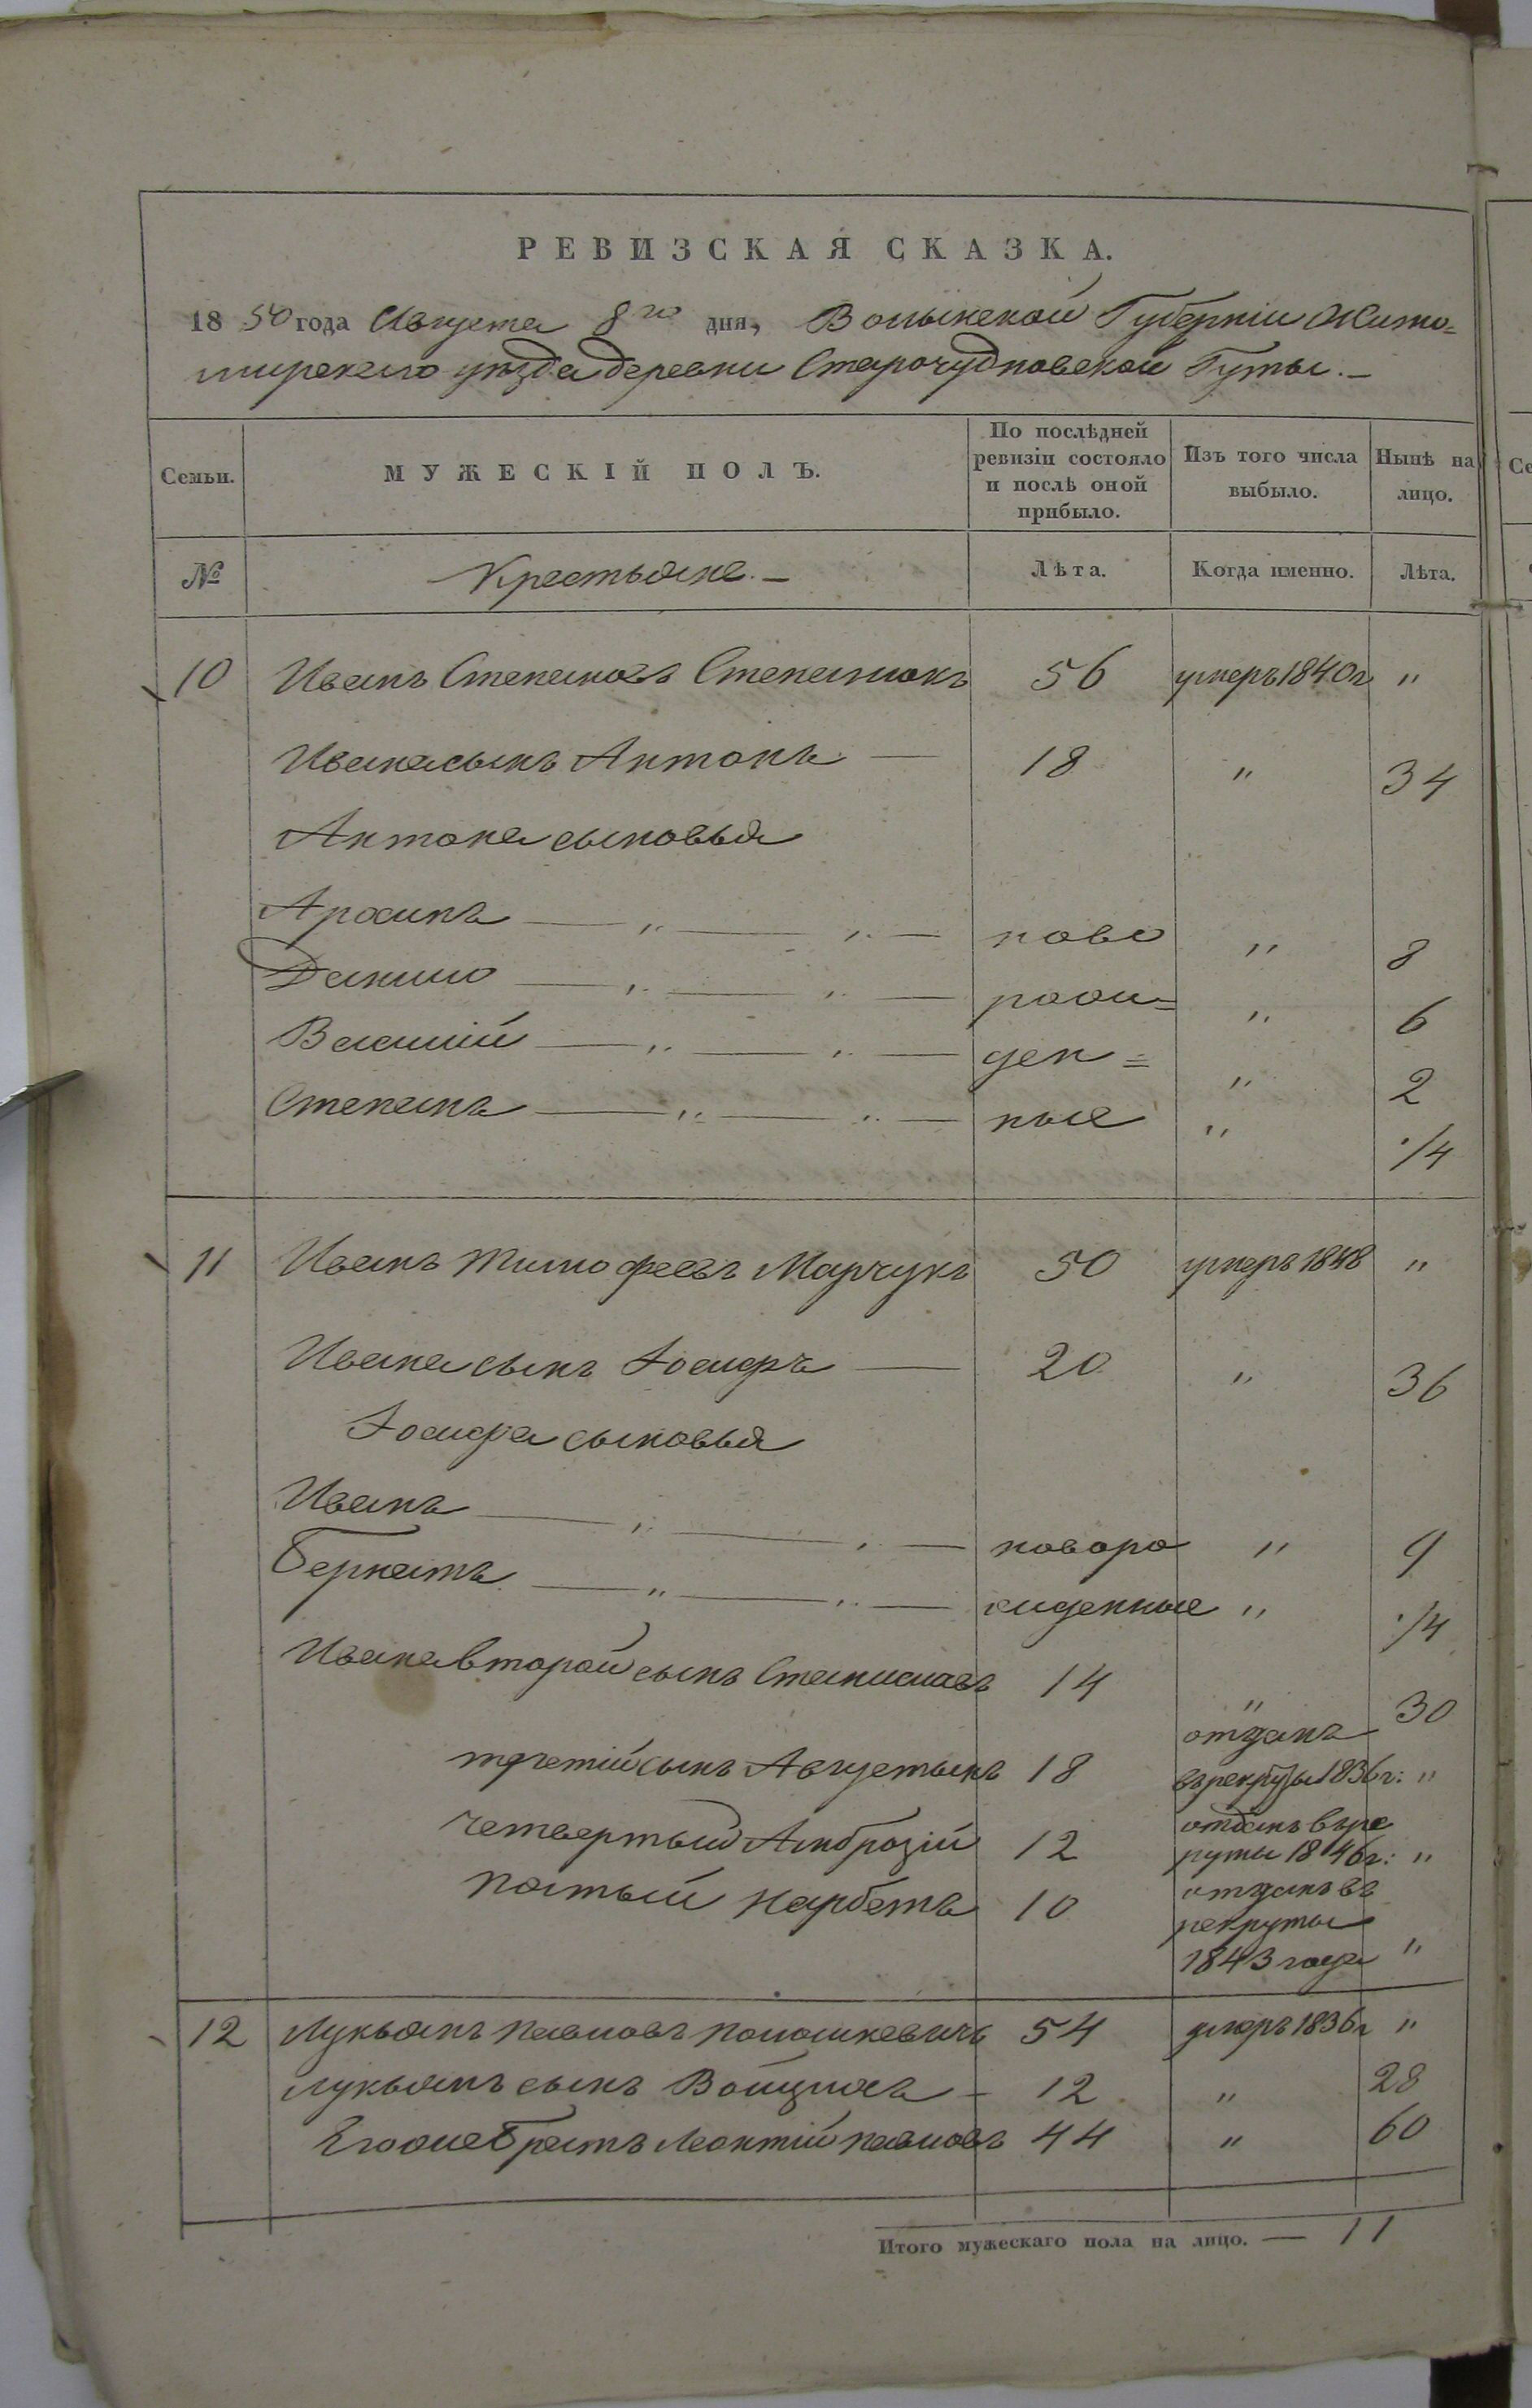 РЕВИЗСКАЯ СКАЗКА.
1850 года Августа 8го дня, Волынской Губерніи Жито=
мирскаго уѣзда деревни Старочудновской Гуты.—
Семьи. МУЖЕСКІЙ ПОЛЪ. По послѣдней ревизіи состояло и послѣ оной прибыло. Изъ того числа выбыло. Нынѣ на лицо.
№ Крестьяне.— Лѣта. Когда именно. Лѣта.
10 Иванъ Степановъ Степанюкъ 56 умеръ 1840г "
Ивана сынъ Антонъ — 18 " 34
Антона сыновья
Архипъ — " — " — ново " 8
Данило — " — " — рож= " 6
Василій — " — " — ден= " 2
Степанъ — " — " — ные " 1/4
11 Иванъ Тимофеевъ Марчукъ 50 умеръ 1848 "
Ивана сынъ Іосифъ — 20 " 36
Іосифа сыновья
Иванъ — " — " — новоро " 9
Бернатъ — " — " — жденные " 1/4
Ивана второй сынъ Станиславъ 14 " 30
третій сынъ Августынъ 18 отданъ
въ рекруты 1836г: "
четвертый Амброзій 12 отданъ въ ре
круты 1846г: "
пятый Нарбетъ 10 отданъ въ
рекруты
1843 года "
12 Лукьянъ Павловъ 54 умеръ 1836г "
Лукьянъ сынъ Войцѣхъ — 12 " 28
Его же братъ Леонтій Павловъ 44 " 60
Итого мужескаго пола на лицо. — 11